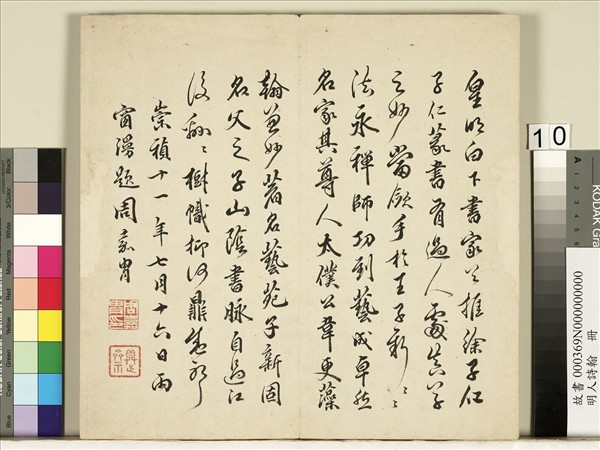 皇明白下書家公推徐子仁
子仁篆書有過人處其八字
之妙當歛手於王子新〻〻
法永禪師功到藝成卓然
名家其尊人太僕公韋更藻
翰並妙著名藝苑子新固
名父之子山陰書脉自過江
後翩〻樹幟抑何鼎盛耶
崇禎十一年七月十六日雨
窗漫題周嘉胄
10
KODAK Gra
故書 000369N000000000
明人詩翰 冊
Blue
Cyan
Green
Yellow
Red
Magenta
White
3/Color
Black